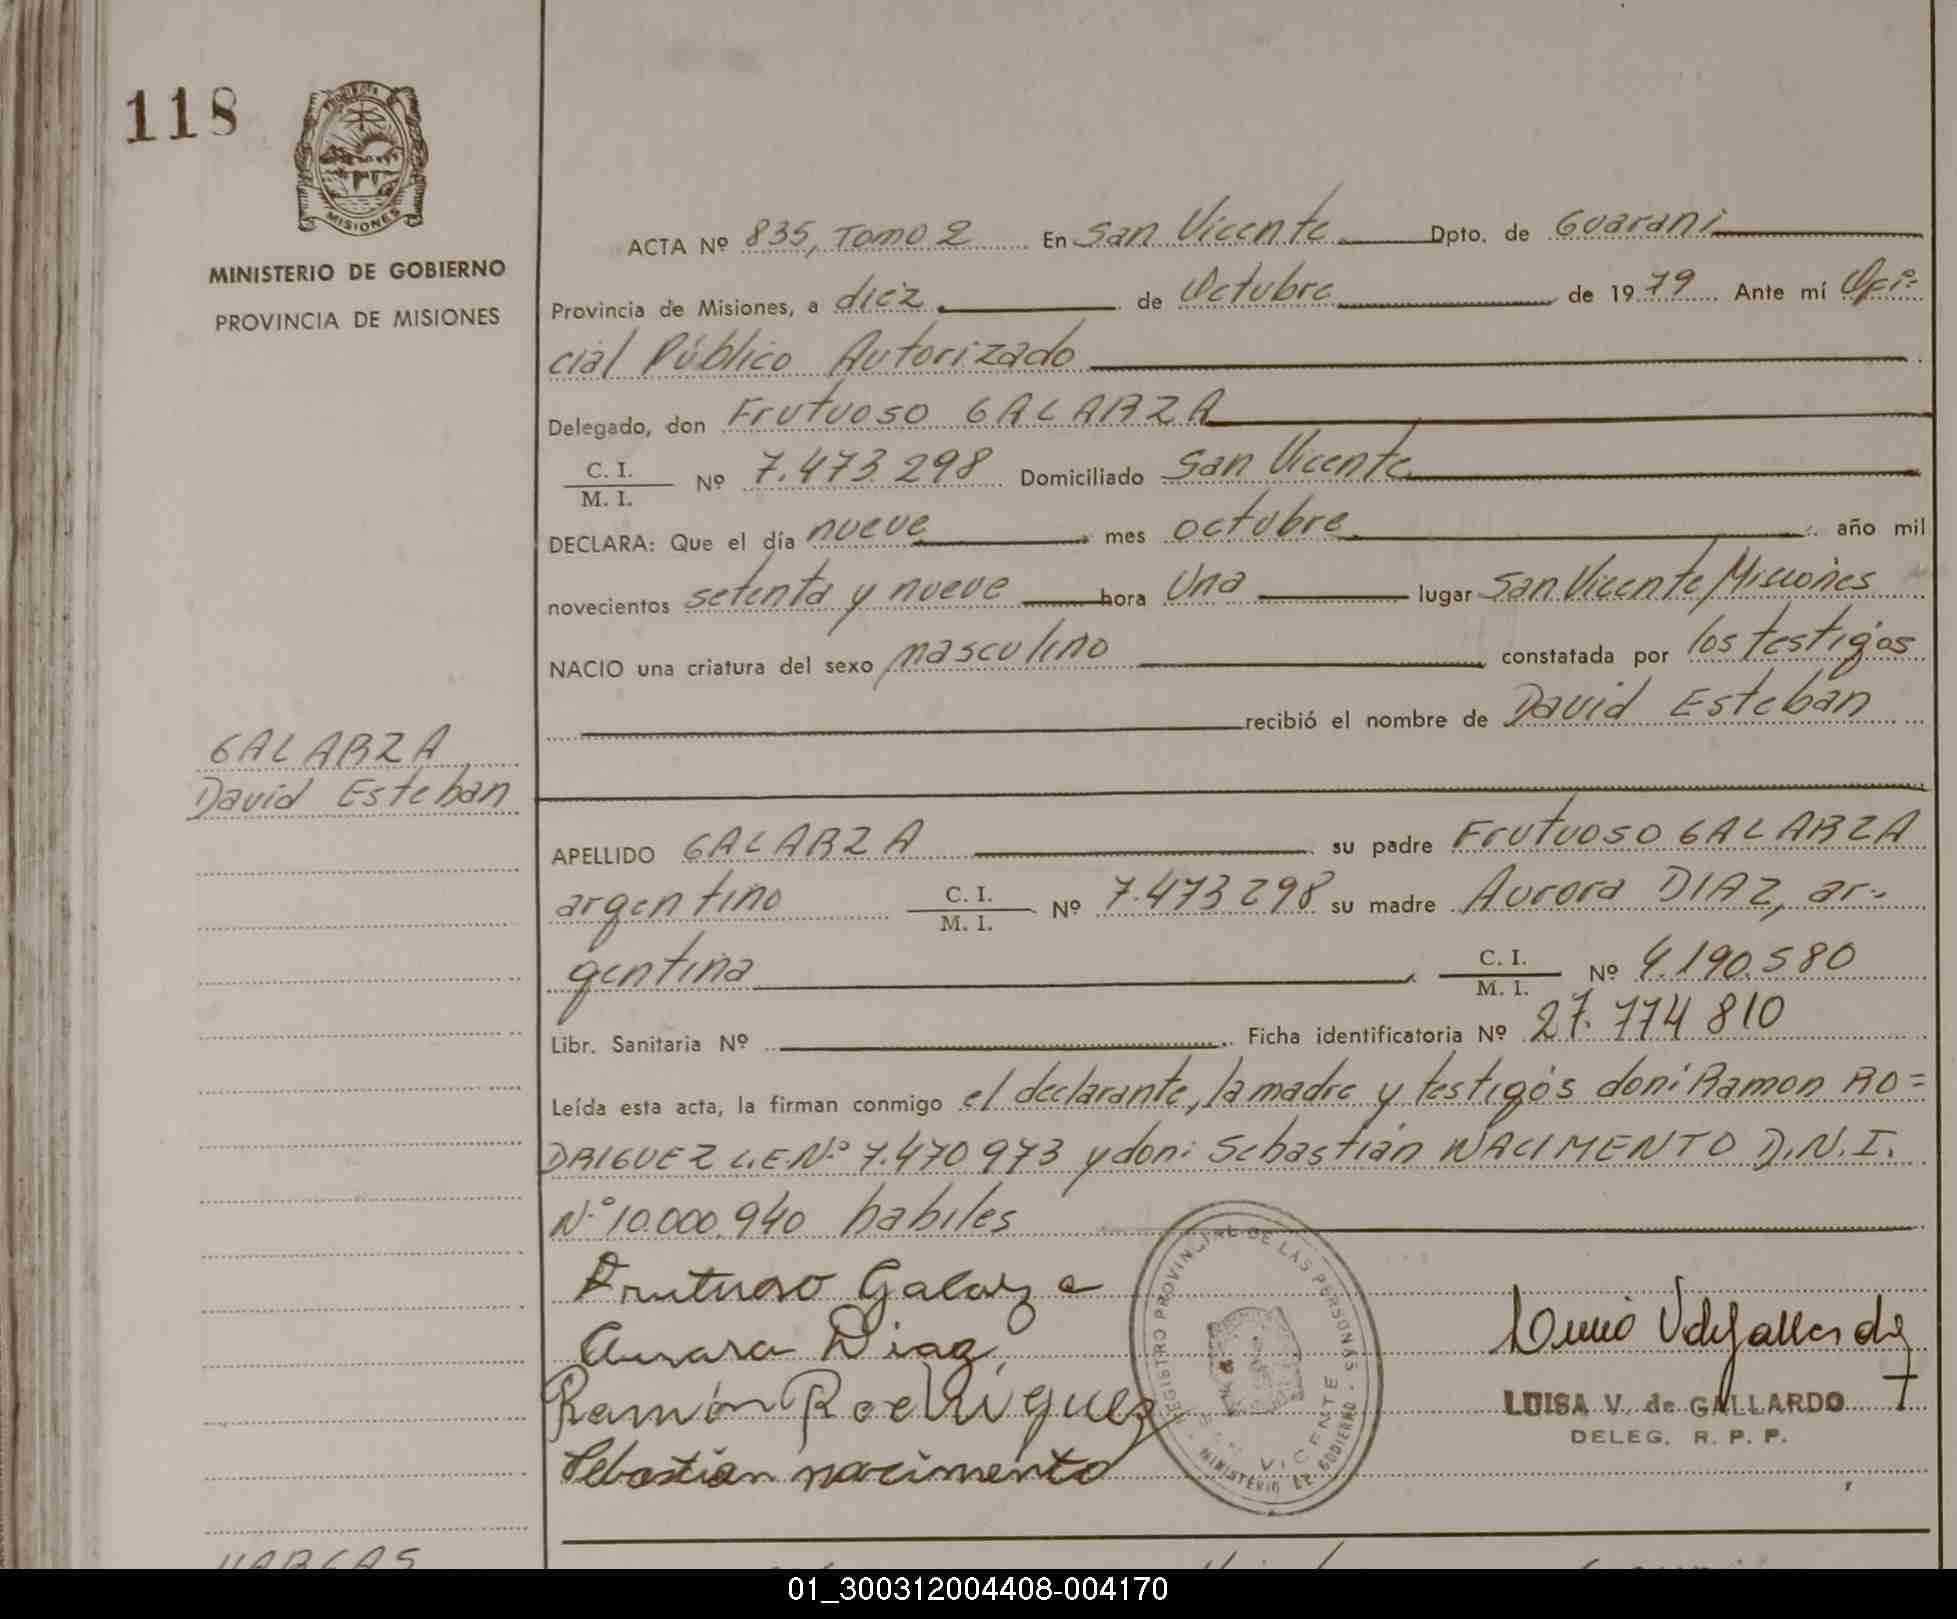 118
PROVINCIA
MISIONES
MINISTERIO DE GOBIERNO
PROVINCIA DE MISIONES
ACTA Nº 835, Tomo 2 En San Vicente Dpto. de Guarani
Provincia de Misiones, a diez de Octubre de 1979 Ante mí Ofi-
cial Público Autorizado
Delegado, don Frutuoso GALARZA
C. I.
M. I. Nº 7.473.298 Domiciliado San Vicente
DECLARA: Que el día nueve mes octubre año mil
novecientos setenta y nueve hora Una lugar San Vicente, Misiones
NACIO una criatura del sexo masculino constatada por los testigos
recibió el nombre de David Esteban
GALARZA
David Esteban
APELLIDO GALARZA su padre Frutuoso GALARZA
argentino C. I.
M. I. Nº 7.473298 su madre Aurora DIAZ, ar-
gentina C. I.
M. I. Nº 4.190.580
Libr. Sanitaria Nº Ficha identificatoria Nº 27.774810
Leída esta acta, la firman conmigo el declarante, la madre y testigos don: Ramon RO=
DRIGUEZ L.E.Nº 7.470973 y don: Sebastián NACIMENTO D.N.I.
Nº 10.000.940 habiles
Frutuoso Galarza
Aurara Diaz
Ramón Rodriguez
Sebastian nacimento
REGISTRO PROVINCIAL DE LAS PERSONAS
VICENTE
MINISTERIO DE GOBIERNO
LUISA V. de GALLARDO
DELEG. R. P. P.
VARGAS
01_300312004408-004170